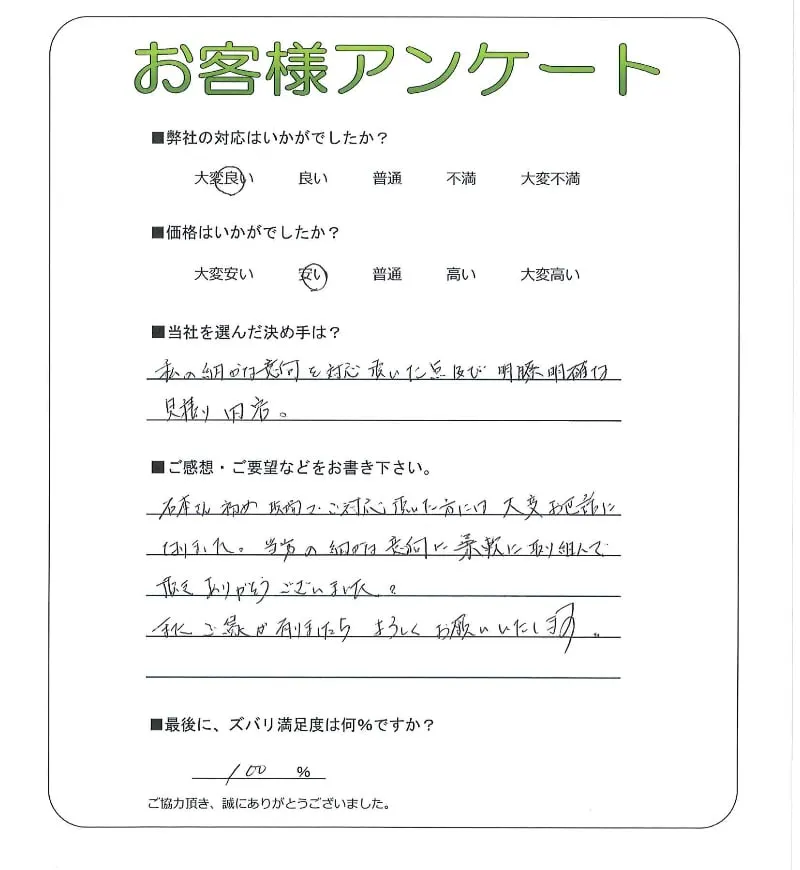 お客様アンケート
■弊社の対応はいかがでしたか？
大変良い 良い 普通 不満 大変不満
■価格はいかがでしたか？
大変安い 安い 普通 高い 大変高い
■当社を選んだ決め手は？
私の細かな意向を対応頂いた点及び 明瞭明確な
見積り内容。
■ご感想・ご要望などをお書き下さい。
石本さん初め ご対応頂いた方には 大変お世話に
なりました。当方の細かな意向に柔軟に取り組んで
頂き ありがとうございました。
また ご縁が有りましたら よろしく お願いいたします。
■最後に、ズバリ満足度は何％ですか？
100 ％
ご協力頂き、誠にありがとうございました。